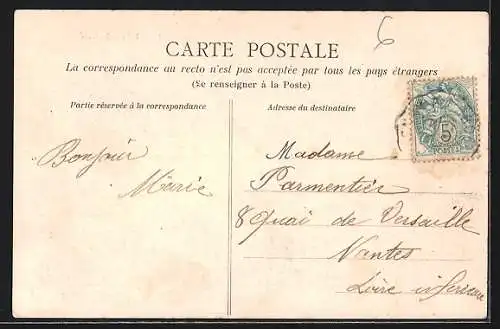 6
CARTE POSTALE
La correspondance au recto n'est pas acceptée par tous les pays étrangers
(Se renseigner à la Poste)
Partie réservée à la correspondance
Adresse du destinataire
5
Bonjour
Marie
Madame
Parmentier
8 Quai de Versaille
Nantes
Loire inférieure